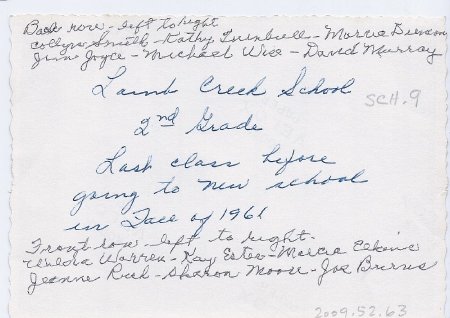 Back row - left to right
Collyn Smith - Kathy Turnbull - Marcia Duncan
June Joyce - Michael Wise - David Murray
Lamb Creek School
SCH. 9
2nd Grade
Last class before
going to new school
in Face of 1961
Front row - left to right.
Warren - Kay Estes - Marcia Elkins
Jeanne Rick - Sharon Moore - Joe Burns
2009.52.63